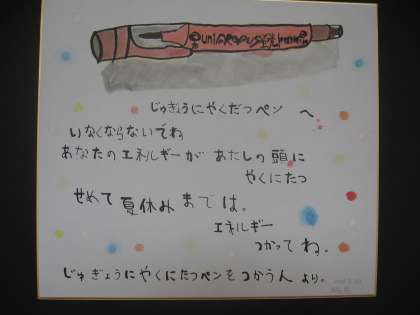 じゅぎょうにやくだつペン へ
いなくならないでね
あなたのエネルギーが あたしの頭に
やくにたつ
せめて夏休みまでは。
エネルギー
つかってね。
じゅぎょうにやくにたつペンをつかう人 より。